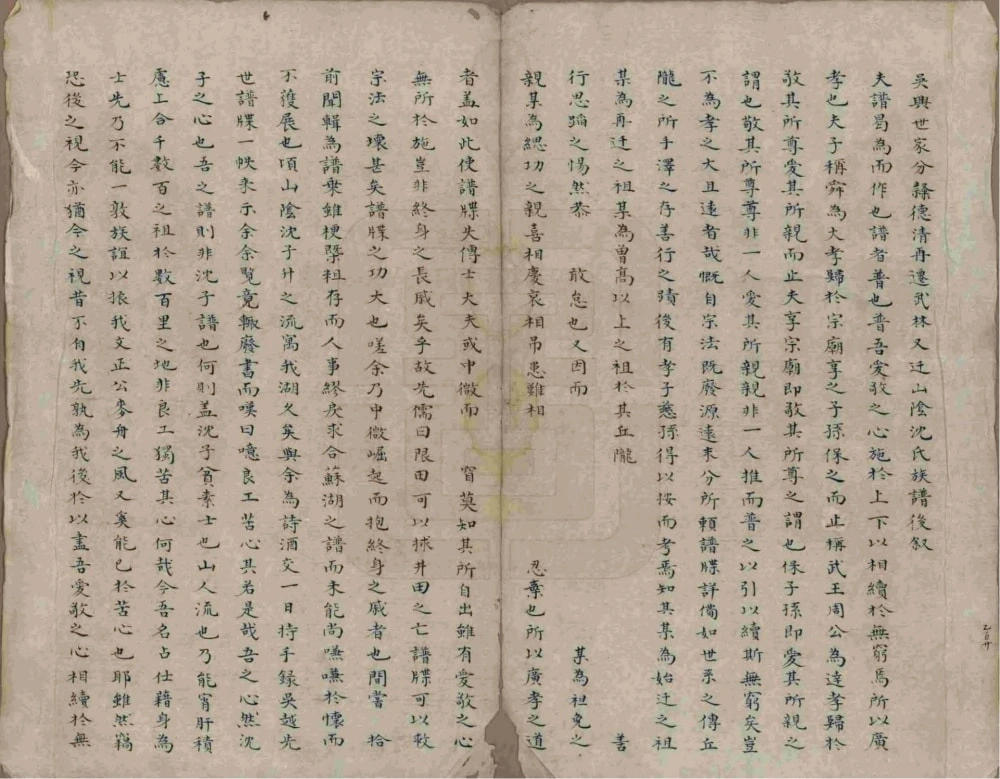 吳興世家分隸德清再遷武林又迁山陰沈氏族譜後叙
夫譜曷為而作也譜者普也普吾愛敬之心施於上下以相續於無窮焉所以廣
孝也夫子稱舜為大孝歸於宗廟享之子孫保之而止稱武王周公為達孝歸於
敬其所尊愛其所親而止夫享宗廟即敬其所尊之謂也保子孫即愛其所親之
謂也敬其所尊尊非一人愛其所親親非一人推而普之以引以續斯無窮矣豈
不為孝之大且遠者哉慨自宗法既廢源遠末分所賴譜牒詳備如世系之傳丘
隴之所手澤之存善行之蹟後有孝子慈孫得以按而考焉知其某為始迁之祖
某為再迁之祖某為曾高以上之祖於其丘隴 善
行思蹈之惕然恭 敢怠也又因而 某為袒免之
親某為緦功之親喜相慶哀相吊患難相 忍棄也所以廣孝之道
者盖如此使譜牒失傳士大夫或中微而 窅莫知其所自出雖有愛敬之心
無所於施豈非終身之長戚矣乎故先儒曰限田可以捄井田之亡譜牒可以救
宗法之壞甚矣譜牒之功大也嗟余乃中微崛起而抱終身之戚者也間嘗 拾
前聞輯為譜乗雖梗槩粗存而人事繆戾求合蘇湖之譜而未能尚嗛嗛於懷而
不獲展也頃山陰沈子升之流寓我湖久矣與余為詩酒交一日持手録吳越先
世譜牒一帙来示余余覧竟輒廢書而嘆曰噫良工苦心其若是哉吾之心然沈
子之心也吾之譜則非沈子譜也何則盖沈子貧素士也山人流也乃能宵肝積
慮上合千數百之祖於數百里之地非良工獨苦其心何哉今吾名占仕籍身為
士先乃不能一敦族誼以振我文正公麥舟之風又奚能已於苦心也耶雖然竊
恐後之視今亦猶今之視昔不自我先孰為我後於以盡吾愛敬之心相續於無